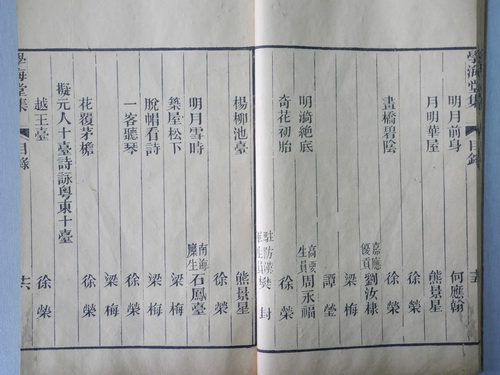 學海堂集 目錄
明月前身 何應翰
月明華屋 熊景星
徐榮
畫橋碧陰 徐榮
嘉應優貢 劉汝棣
梁梅
譚瑩
明漪絶底 高要生員 周永福
奇花初胎 徐榮
駐防漢軍生員 樊封
楊柳池臺 熊景星
徐榮
明月雪時 南海廩生 石鳳臺
築屋松下 梁梅
脫帽看詩 梁梅
一客聽琴 徐榮
梁梅
花覆茅檐 徐榮
擬元人十臺詩詠粵東十臺
越王臺 徐榮
學海堂集 目錄